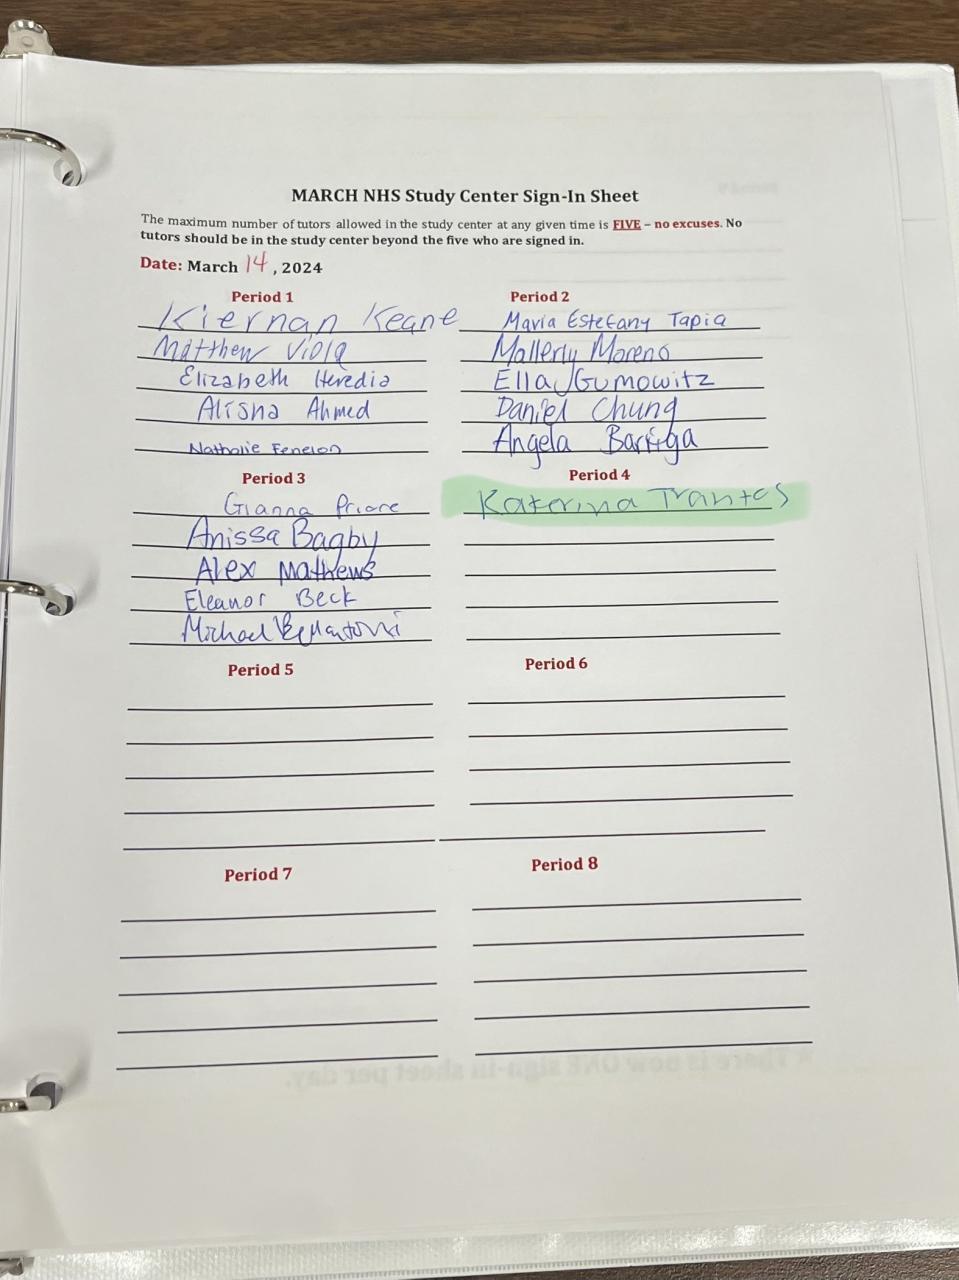 MARCH NHS Study Center Sign-In Sheet
The maximum number of tutors allowed in the study center at any given time is FIVE – no excuses. No
tutors should be in the study center beyond the five who are signed in.
Date: March 14, 2024
Period 1
Kiernan Keane
Matthew Viola
Elizabeth Heredia
Alisha Ahmed
Nathalie Fenelon
Period 2
Maria Estefany Tapia
Mallerly Moreno
Ella Gumowitz
Daniel Chung
Angela Barriga
Period 3
Gianna Priore
Anissa Bagby
Alex Mathews
Eleanor Beck
Michael
Period 4
Katerina Trantos
Period 5
Period 6
Period 7
Period 8
There is now ONE sign-in sheet per day.